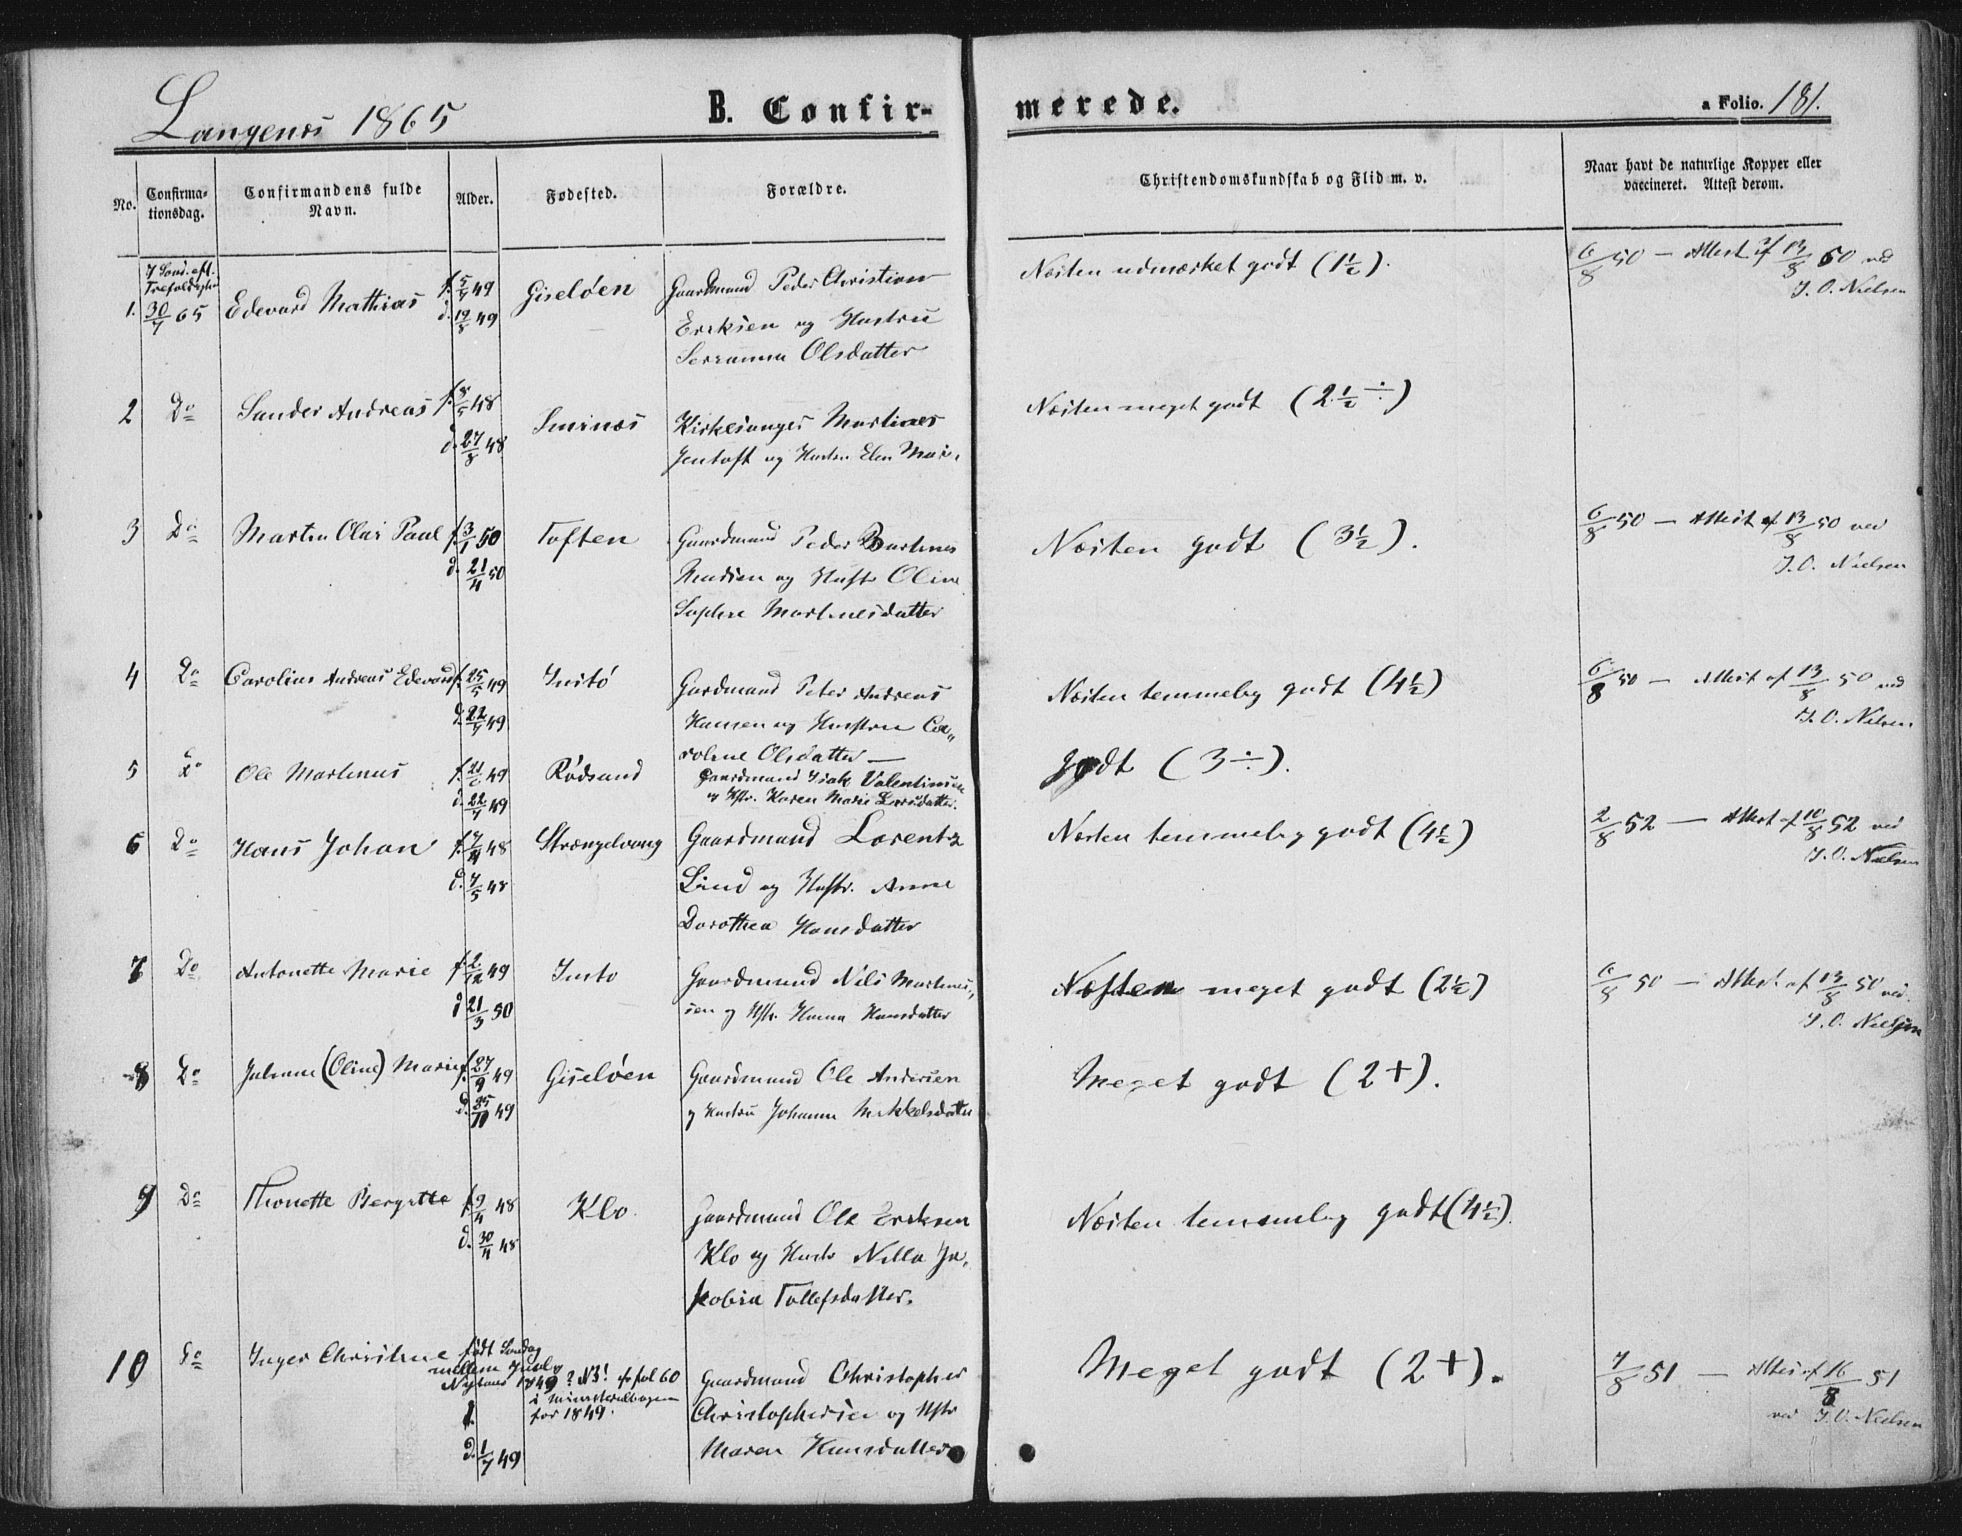 Langenes 1865
B. Confir-
merede.
a Folio. 181.
No.
Confirma-
tionsdag.
Confirmandens fulde
Navn.
Alder.
Fødested.
Forældre.
Christendomskundskab og Flid m. v.
Naar havt de naturlige Kopper eller
vaccineret. Attest derom.
7 Sønd. eft.
1. 30/7 65 Edevard Mathias f. 5/7 49 Giseløen Gaardmand Peder Christian
d. 19/8 49 Ericksen og Hustru
Olsdatter
Næsten udmærket godt (1½).
6/8 50 — Attest af 13/8 50 ved
J. O. Nielsen
2 Do Sander Andreas f. 8/5 48 Smirnæs Kirkesanger Martines
d. 27/8 48 Jentoft og Hustru Elen Mar.
Næsten meget godt (2½÷)
3 Do Martin Olai Paul f. 3/1 50 Toften Gaardmand Peder Bartines
d. 21/4 50 Knudsen og Hustr Oline
Sophie Martinesdatter
Næsten godt (3½).
6/8 50 — Attest af 13/8 50 ved
J. O. Nielsen
4 Do Carolius Andreas Edevard f. 25/5 49 Instö Gardmand Peter Andreas
d. 22/7 49 Hansen og Hustru Ca„
roline Olsdatter —
Næsten temmelig godt (4½)
6/8 50 — Attest af 13/8 50 ved
J. O. Nielsen
5 Do Ole Martinus 49 Rødsand Gaardmand Isak Valentinsen
d. 22/7 49 og Hstr. Karen Marie Larsdatter.
Godt (3÷).
6 Do Hans Johan f. 7/4 48 Strængelvaag Gaardmand Lorentz
d. 7/5 48 Lind og Hustr. Anne
Dorothea Hansdatter
Næsten temmelig godt (4½)
2/8 52 — Attest af 10/8 52 ved
J. O. Nielsen
7 Do Antonette Marie f. 2/12 49 Insto Gaardmand Nils Martinus„
d 21/3 50 sen og Hstr. Hanna Hansdatter
Næsten meget godt (2½)
6/8 50 — Attest af 13/8 50 ved
J. O. Nielsen
8 Do (Oline) Marie f. 27/9 49 Giseløen Gaardmand Ole Andersen
d. 25/10 49 og Hustru Johanna Mikkelsdatter
Meget godt (2+).
9 Do Thonette Bergitte f. 9/4 48 Klo. Gaardmand Ole Ericksen
d. 30/4 48 Klo og Hustr Nilla Ja„
kobia Tollefsdatter.
Næsten temmelig godt (4½).
10 Do Inger Christine født Søndag
mellem Juul og
Nytaar 1849? NB! cfr fol 60
i ministerialbogen
for 1849.
f.
d. 1/7 49
Gaardmand Christopher
Christophersen og Hstr
Maren Hansdatter
Meget godt (2+).
7/8 51 — Attest af 16/8 51
ved J. O. Nielsen